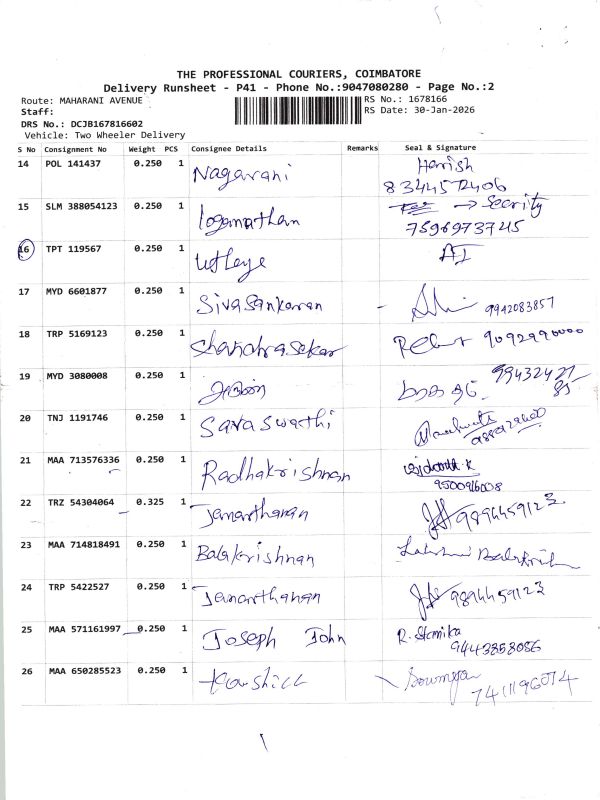 THE PROFESSIONAL COURIERS, COIMBATORE
Delivery Runsheet - P41 - Phone No.:9047080280 - Page No.:2
Route: MAHARANI AVENUE RS No.: 1678166
Staff: RS Date: 30-Jan-2026
DRS No.: DCJB167816602
Vehicle: Two Wheeler Delivery
S No Consignment No Weight PCS Consignee Details Remarks Seal & Signature
14 POL 141437 0.250 1 Nagarani Harish
8344572406
15 SLM 388054123 0.250 1 loganathan → Secrity
7596973745
16 TPT 119567 0.250 1
17 MYD 6601877 0.250 1 Sivasankaran 9942083857
18 TRP 5169123 0.250 1 Chandrasekar 9092990000
19 MYD 3080008 0.250 1 99432421
85
20 TNJ 1191746 0.250 1 Saraswathi
21 MAA 713576336 0.250 1 Radhakrishnan
22 TRZ 54304064 0.325 1 Janarthanan 9894459123
23 MAA 714818491 0.250 1 Balakrishnan Lakshmi Balakrishn
24 TRP 5422527 0.250 1 Janarthanan 9894459123
25 MAA 571161997 0.250 1 Joseph John R.
9443858086
26 MAA 650285523 0.250 1 Sowmya